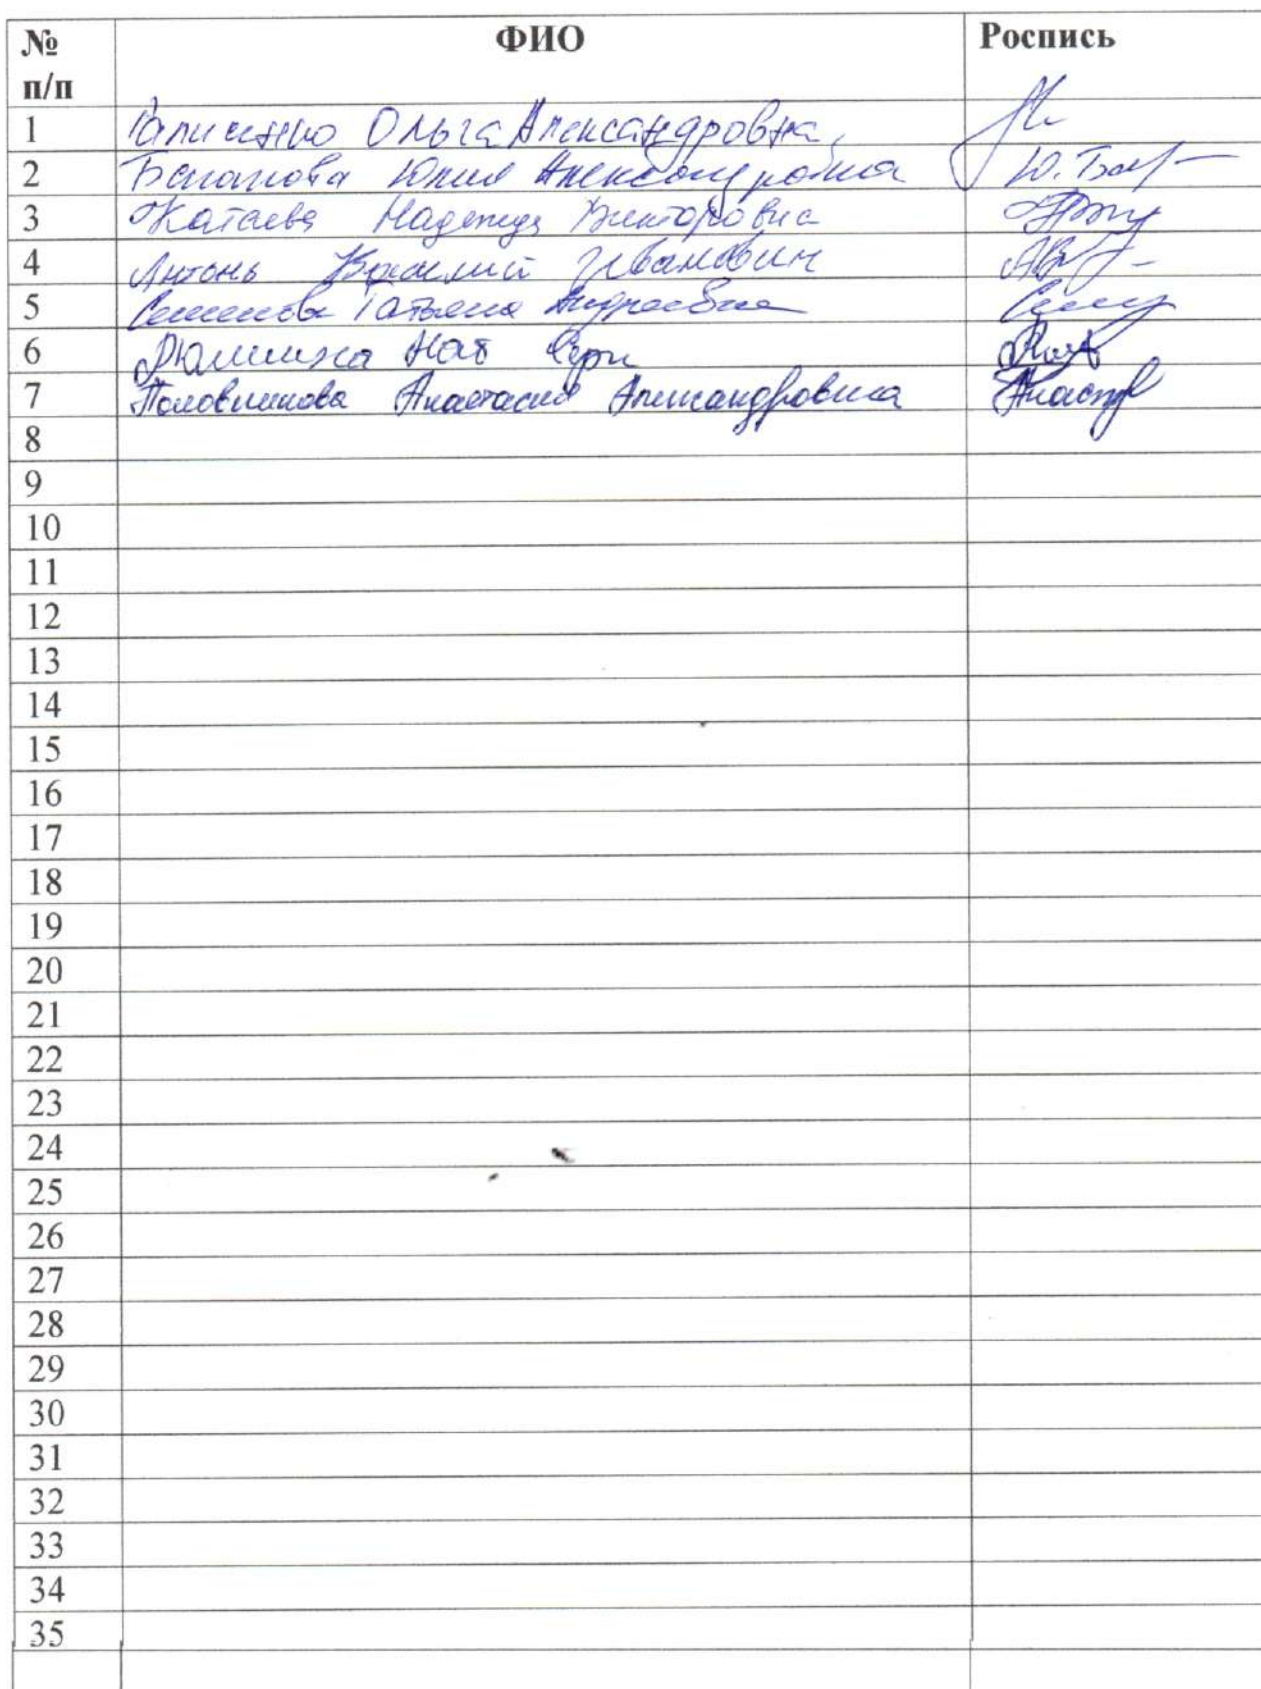 № п/п ФИО Роспись
1 Ольга Александровна
2 Юлия Александровна
3 Катаева Надежда Викторовна
4 Антонь Василий Иванович
5 Семенова Татьяна Андреевна
6 Нат Серг
7 Половникова Анастасия Александровна
8
9
10
11
12
13
14
15
16
17
18
19
20
21
22
23
24
25
26
27
28
29
30
31
32
33
34
35